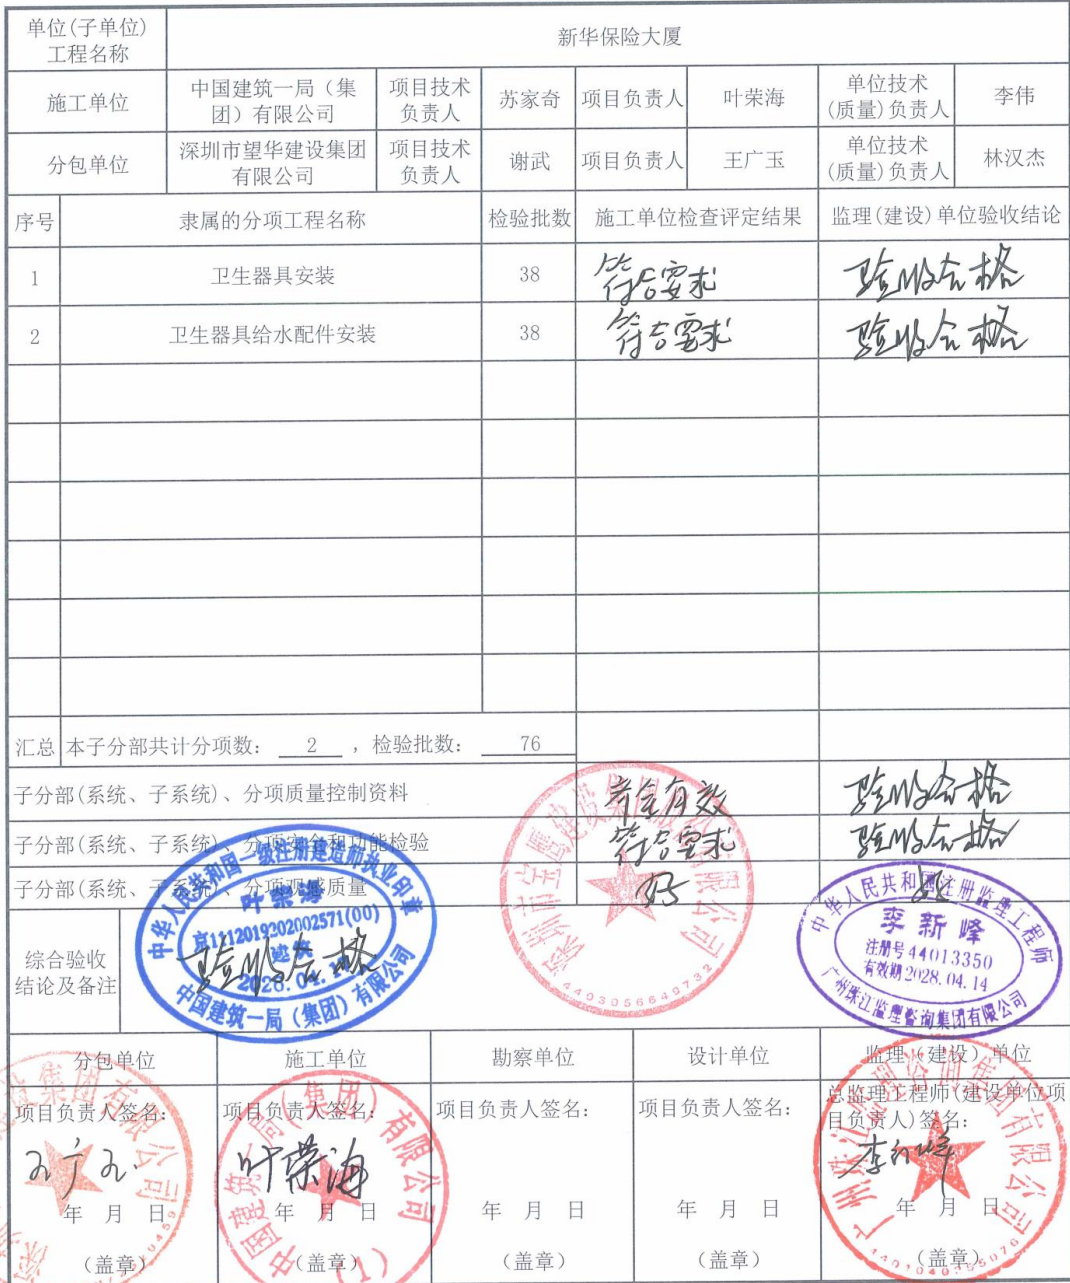 单位(子单位)
工程名称
新华保险大厦
施工单位
中国建筑一局（集
团）有限公司
项目技术
负责人
苏家奇
项目负责人
叶荣海
单位技术
(质量)负责人
李伟
分包单位
深圳市望华建设集团
有限公司
项目技术
负责人
谢武
项目负责人
王广玉
单位技术
(质量)负责人
林汉杰
序号
隶属的分项工程名称
检验批数
施工单位检查评定结果
监理(建设)单位验收结论
1
卫生器具安装
38
符合要求
验收合格
2
卫生器具给水配件安装
38
符合要求
验收合格
汇总
本子分部共计分项数： 2 ，检验批数： 76
子分部(系统、子系统)、分项质量控制资料
齐全有效
验收合格
子分部(系统、子系统)、分项安全和功能检验
符合要求
验收合格
子分部(系统、子系统)、分项观感质量
好
好
综合验收
结论及备注
验收合格
中华人民共和国一级注册建造师执业印章
叶荣海
京1112019202002571(00)
中国建筑一局（集团）有限公司
4403056649732
中华人民共和国注册监理工程师
李新峰
注册号44013350
有效期2028.04.14
广州珠江监理咨询集团有限公司
分包单位
施工单位
勘察单位
设计单位
监理（建设）单位
项目负责人签名：
项目负责人签名：
项目负责人签名：
项目负责人签名：
总监理工程师(建设单位项
目负责人)签名：
王广玉
叶荣海
李新峰
年 月 日
年 月 日
年 月 日
年 月 日
年 月 日
（盖章）
（盖章）
（盖章）
（盖章）
（盖章）
广州珠江监理咨询集团有限公司